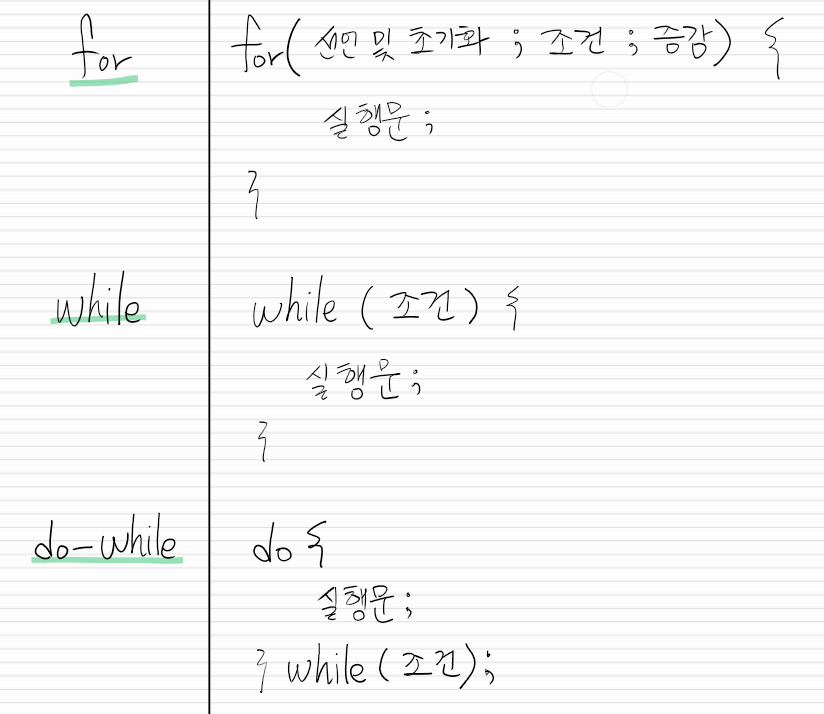 for
for( 선언 및 초기화 ; 조건 ; 증감) {
실행문 ;
}
while
while ( 조건 ) {
실행문 ;
}
do-while
do {
실행문 ;
} while ( 조건 );